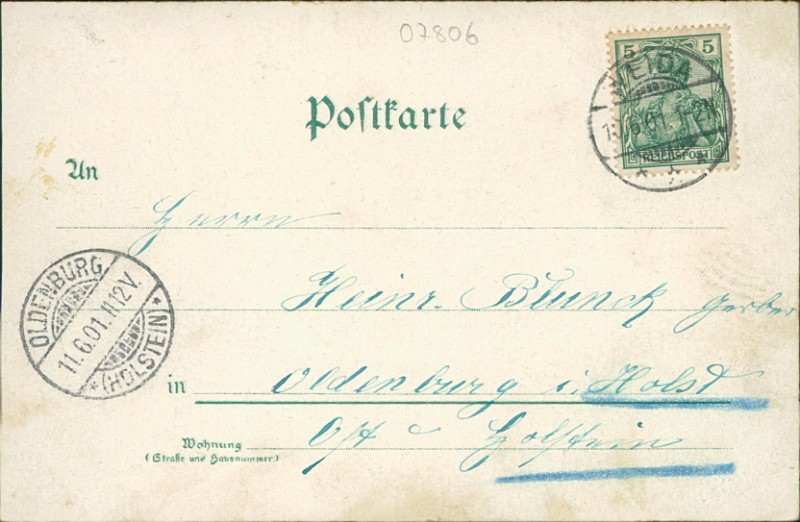 07806
5 5
WEIDA
REICHSPOST
Postkarte
An
Herrn
OLDENBURG
11.6.01.11-12V.
*(HOLSTEIN)*
Heinr. Blunck Gerber
in Oldenburg i. Holst
Wohnung
(Straße und Hausnummer)
Ost Holstein